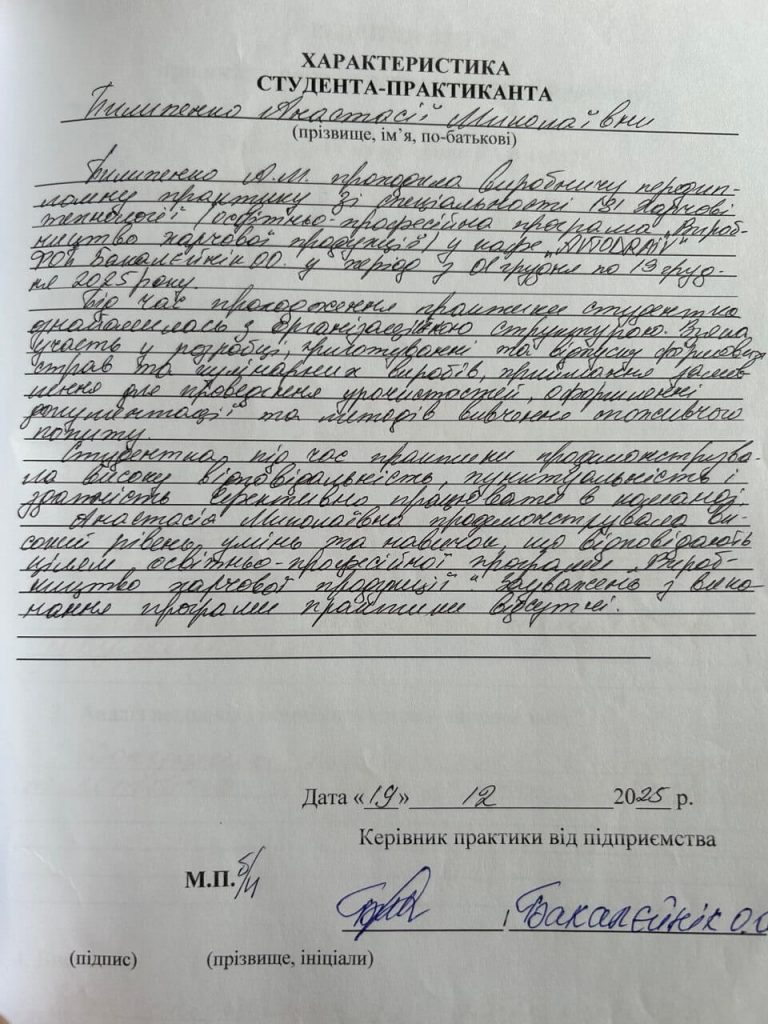 ХАРАКТЕРИСТИКА
СТУДЕНТА-ПРАКТИКАНТА
Билипенко Анастасії Миколаївни
(прізвище, ім’я, по-батькові)
Билипенко А.М. проходила виробничу переддип-
ломну практику зі спеціальності 181 Харчові
технології (освітньо-професійна програма „Вироб-
ництво харчової продукції") у кафе
ФОП Бакалєйнік О.О. у період з 01 грудня по 19 груд-
ня 2025 року.
Під час проходження практики студентка
ознайомилась з організаційною структурою. Взяла
участь у розробці, приготуванні та відпуску фірмових
страв та кулінарних виробів, приймання замов
лення для проведення урочистостей, оформленні
документації та методів вивчення споживчого
попиту.
Студентка під час практики продемонструва-
ла високу відповідальність, пунктуальність і
здатність ефективно працювати в команді.
Анастасія Миколаївна продемонструвала ви-
сокий рівень умінь та навичок, що відповідають
цілям освітньо-професійної програми „Вироб-
ництво харчової продукції". Зауважень з вико-
нання програми практики відсутні.
Дата «19» 12 2025 р.
Керівник практики від підприємства
М.П. б/п
Бакалєйнік О.О
(підпис) (прізвище, ініціали)